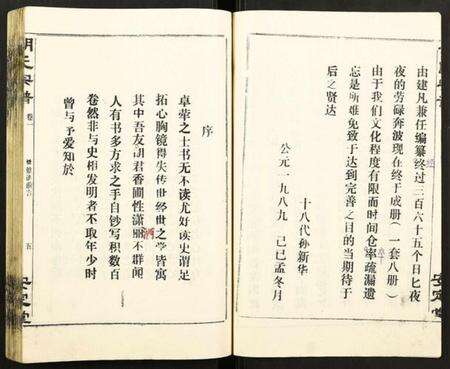 由建凡兼任编纂终过三百六十五个日匕夜
夜的劳碌奔波现在终于成册（一套八册）
由于我们文化程度有限而时间仓率疏漏遗
忘是所难免致于达到完善之目的当期待于
后之贤达
十八代孙新华
公元一九八九 己巳孟冬月
安定堂
序
卓荦之士书无不读尤好读史谓足
拓心胸镜得失传世经世之学皆寓
其中吾友胡君香圃性潇丽不群闻
人有书多方求之手自钞写积数百
卷然非与史相发明者不取年少时
曾与予爱知於
胡氏宗谱
卷一
五
安定堂